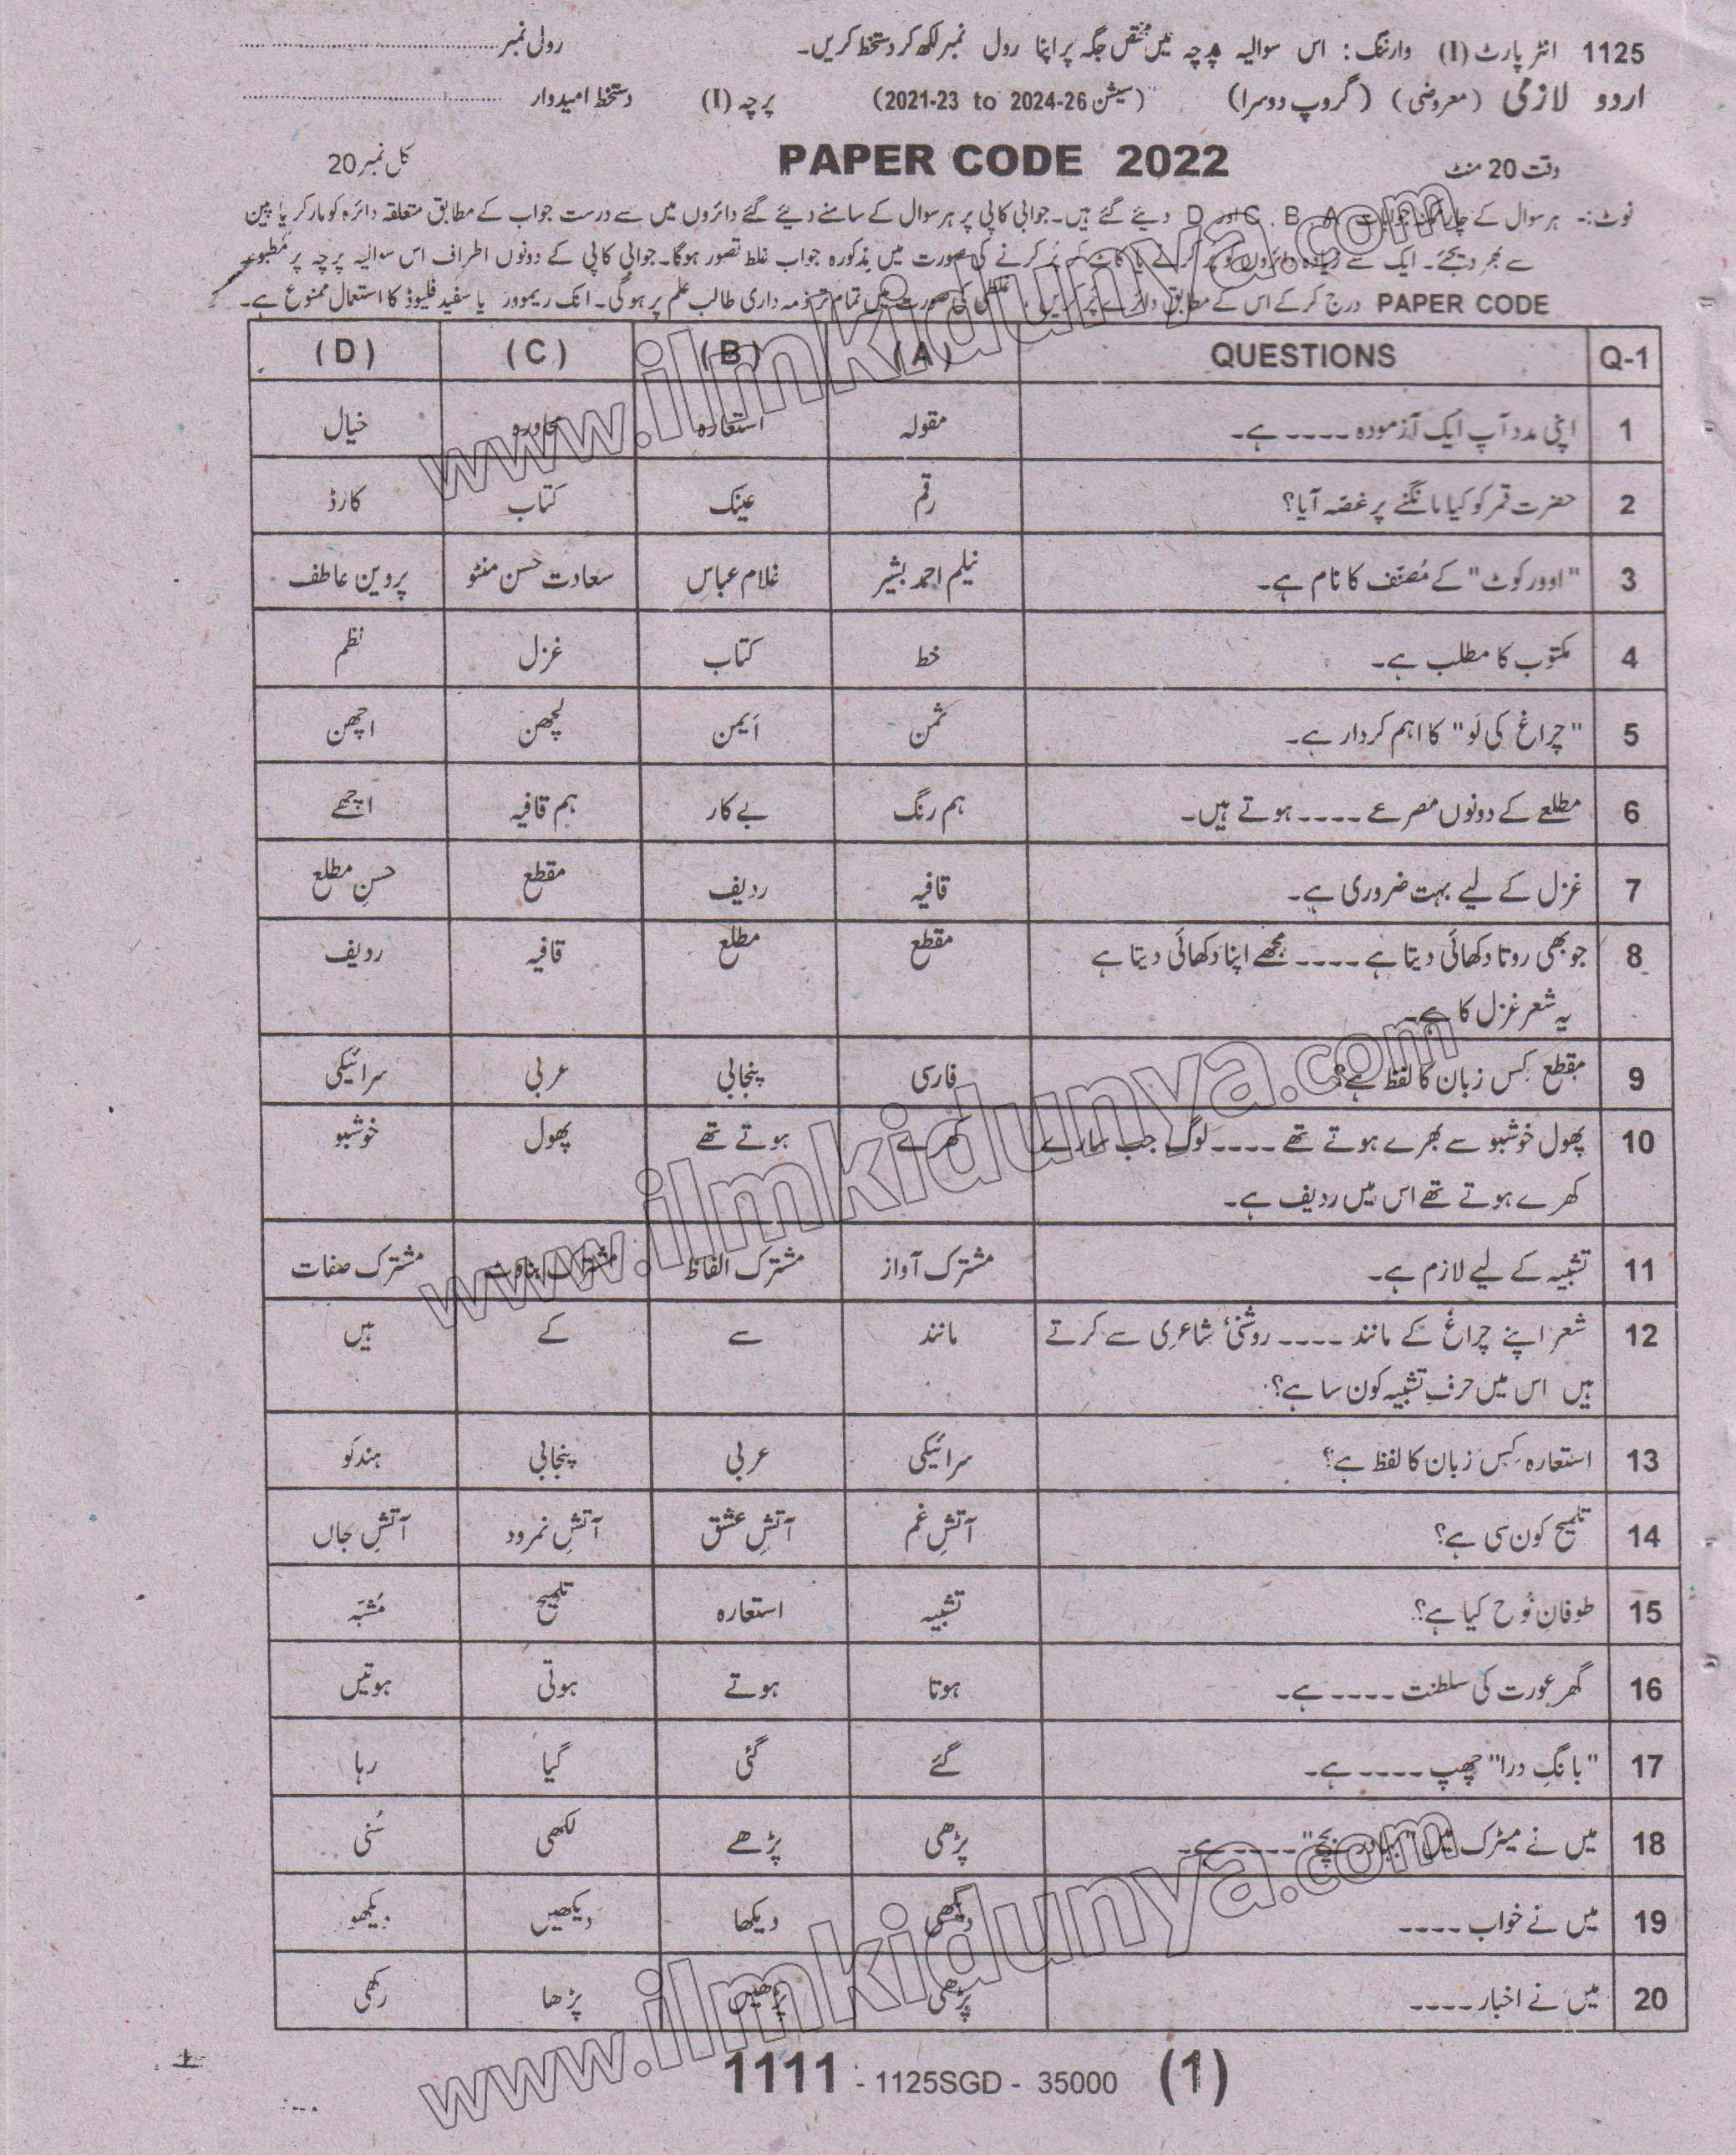 1125 انٹر پارٹ (I) وارننگ: اس سوالیہ پرچہ میں مختص جگہ پر اپنا رول نمبر لکھ کر دستخط کریں۔ رولی نمبر
اردو لازمی (معروضی) (گروپ دوسرا) (سیشن 2021-23 to 2024-26) پرچہ (I) دستخط امیدوار
وقت 20 منٹ PAPER CODE 2022 کل نمبر 20
نوٹ:۔ ہر سوال کے چار A B C اور D دیئے گئے ہیں۔ جوابی کاپی پر ہر سوال کے سامنے دیئے گئے دائروں میں سے درست جواب کے مطابق متعلقہ دائرہ کو مارکر یا پین
سے بھر دیجئے۔ ایک سے زیادہ دائروں کو پُر کرنے یا کاٹ کر پُر کرنے کی صورت میں مذکورہ جواب غلط تصور ہوگا۔ جوابی کاپی کے دونوں اطراف اس سوالیہ پرچہ پر مطبوعہ
PAPER CODE درج کر کے اس کے مطابق دائرے پُر کریں، غلطی کی صورت میں تمام تر ذمہ داری طالب علم پر ہوگی۔ انک ریموور یا سفید فلیوڈ کا استعمال ممنوع ہے۔
Q-1 QUESTIONS (A) (B) (C) (D)
1 اپنی مدد آپ ایک آزمودہ ---- ہے۔ مقولہ استعارہ محاورہ خیال
2 حضرت قمر کو کیا مانگنے پر غصّہ آیا؟ رقم عینک کتاب کارڈ
3 "اوور کوٹ" کے مُصنّف کا نام ہے۔ نیلم احمد بشیر غلام عباس سعادت حسن منٹو پروین عاطف
4 مکتوب کا مطلب ہے۔ خط کتاب غزل نظم
5 "چراغ کی لَو" کا اہم کردار ہے۔ ثمن اَیمن لچھن اچھن
6 مطلعے کے دونوں مصرعے ---- ہوتے ہیں۔ ہم رنگ بے کار ہم قافیہ اچھے
7 غزل کے لیے بہت ضروری ہے۔ قافیہ ردیف مقطع حسنِ مطلع
8 جو بھی روتا دکھائی دیتا ہے ---- مجھے اپنا دکھائی دیتا ہے مقطع مطلع قافیہ ردیف
یہ شعر غزل کا ہے۔
9 مقطع کِس زبان کا لفظ ہے؟ فارسی پنجابی عربی سرائیکی
10 پھول خوشبو سے بھرے ہوتے تھے ---- لوگ جب سارے کھرے ہوتے تھے پھول خوشبو
کھرے ہوتے تھے اس میں ردیف ہے۔
11 تشبیہ کے لیے لازم ہے۔ مشترک آواز مشترک الفاظ مشترک بناوٹ مشترک صفات
12 شعر اپنے چراغ کے مانند ---- روشنیٔ شاعری سے کرتے مانند سے کے ہیں
ہیں اس میں حرفِ تشبیہ کون سا ہے؟
13 استعارہ کِس زبان کا لفظ ہے؟ سرائیکی عربی پنجابی ہندکو
14 تلمیح کون سی ہے؟ آتشِ غم آتشِ عشق آتشِ نمرود آتشِ جاں
15 طوفانِ نُوح کیا ہے؟ تشبیہ استعارہ تلمیح مُشبّہ
16 گھر عورت کی سلطنت ---- ہے۔ ہوتا ہوتے ہوتی ہوتیں
17 "بانگِ درا" چھپ ---- ہے۔ گئے گئی گیا رہا
18 میں نے میٹرک میں بچے" ---- ہے۔ پڑھی پڑھے لکھی سُنی
19 میں نے خواب ---- دیکھی دیکھا دیکھیں دیکھو
20 میں نے اخبار ---- پڑھی پڑھیں پڑھا رکھی
1111 - 1125SGD - 35000 (1)
www.ilmkidunya.com
www.ilmkidunya.com
www.ilmkidunya.com